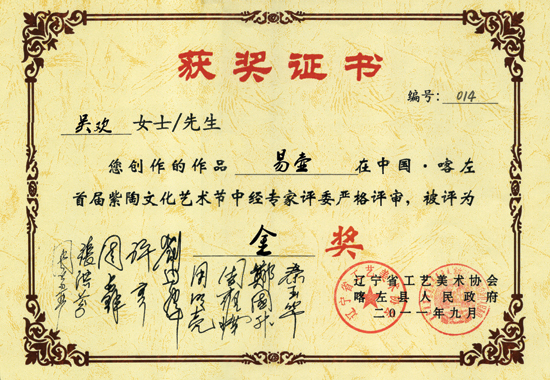 获奖证书
编号: 014
吴欢 女士/先生
您创作的作品 易壶 在中国·喀左
首届紫陶文化艺术节中经专家评委严格评审，被评为
金 奖
辽宁省工艺美术协会
喀左县人民政府
二〇一一年九月